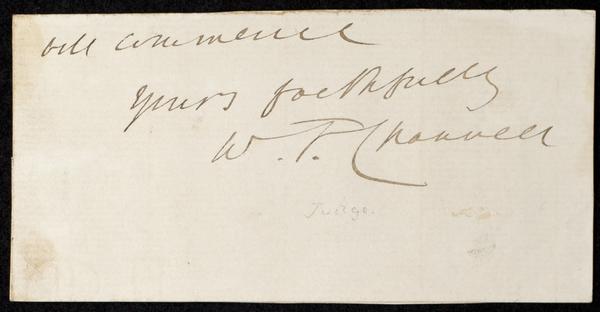 will commence
yours faithfully
W. F. Channell
Judge.